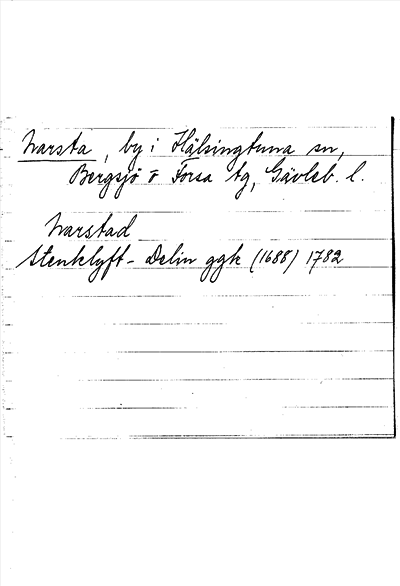 Narsta, by i Hälsingtuna sn,
Bergsjö o Forsa tg, Gävleb. l.
Narstad
Stenklyft - Delin ggk (1688) 1782